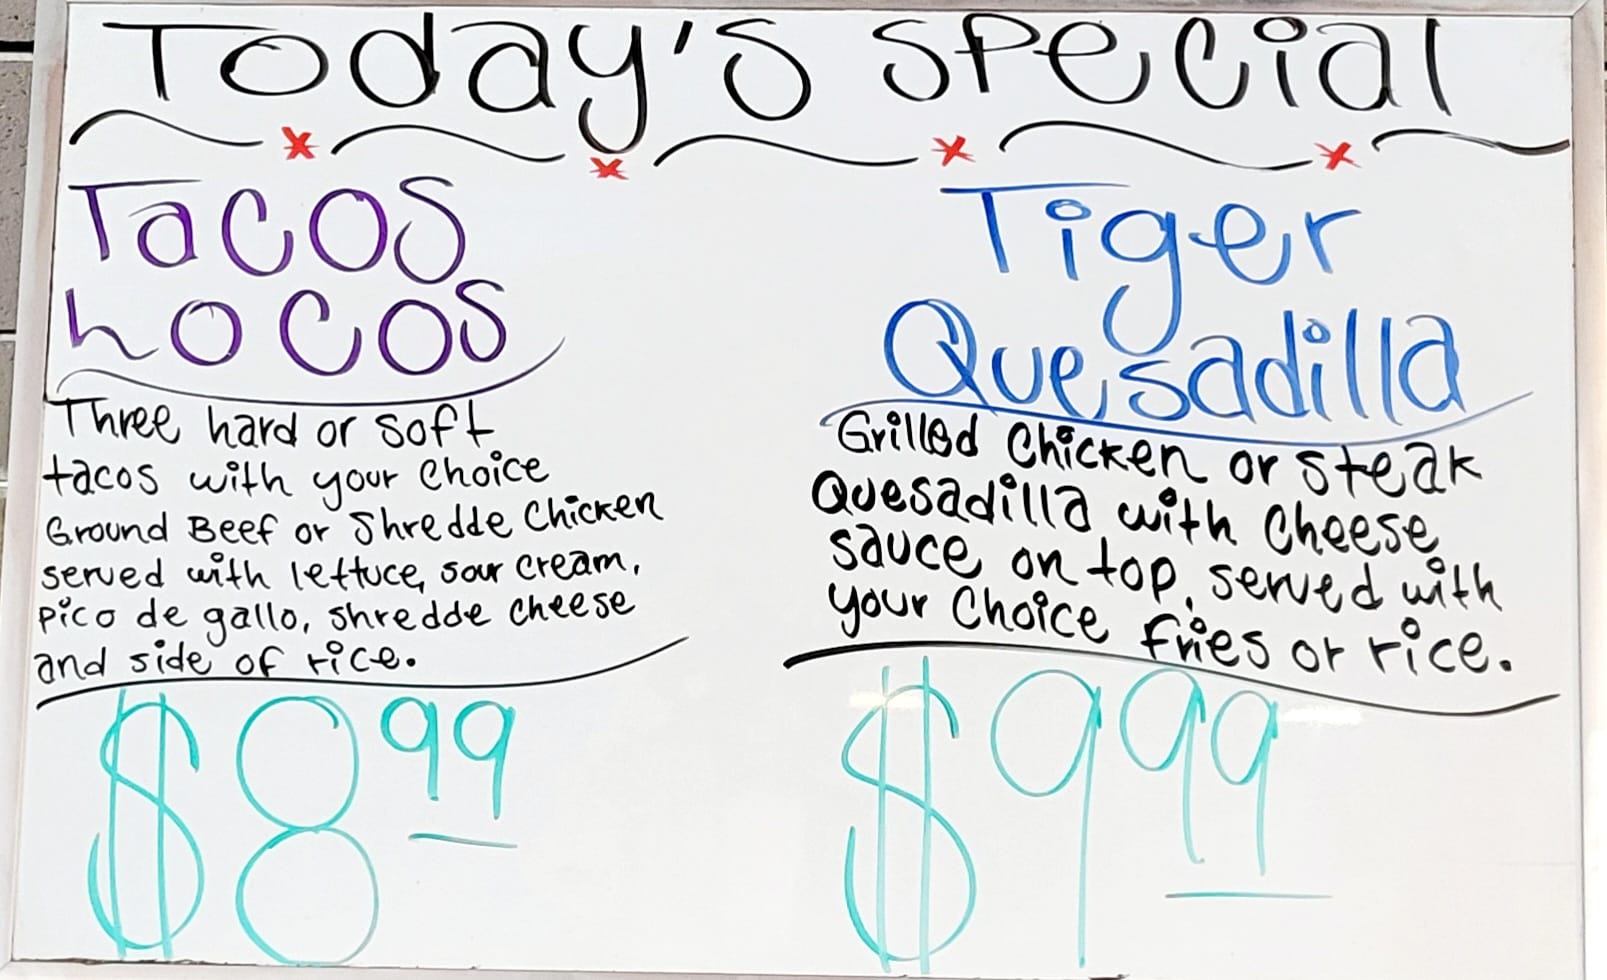 Today's special
Tacos
Locos
Three hard or soft
tacos with your choice
Ground Beef or Shredde Chicken
served with lettuce, sour cream,
pico de gallo, shredde cheese
and side of rice.
$8.99
Tiger
Quesadilla
Grilled Chicken or steak
Quesadilla with cheese
sauce on top, served with
your choice fries or rice.
$999